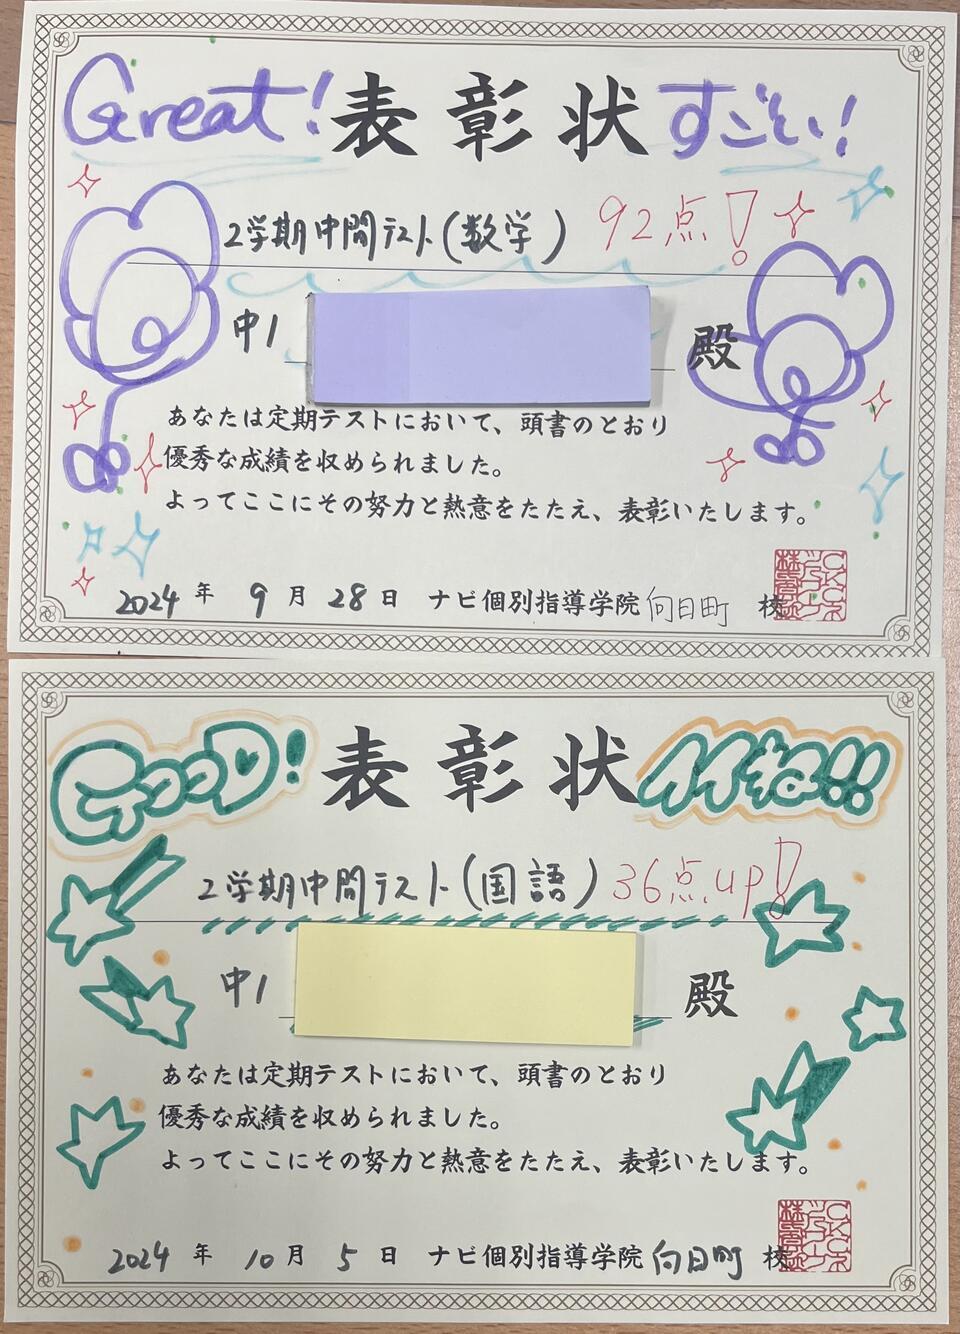 Great! 表彰状 すごい!
2学期中間テスト(数学) 92点!
中1 殿
あなたは定期テストにおいて、頭書のとおり
優秀な成績を収められました。
よってここにその努力と熱意をたたえ、表彰いたします。
2024 年 9 月 28 日 ナビ個別指導学院 向日町 校
GooD! 表彰状 イイね!!
2学期中間テスト(国語) 36点up!
中1 殿
あなたは定期テストにおいて、頭書のとおり
優秀な成績を収められました。
よってここにその努力と熱意をたたえ、表彰いたします。
2024 年 10 月 5 日 ナビ個別指導学院 向日町 校